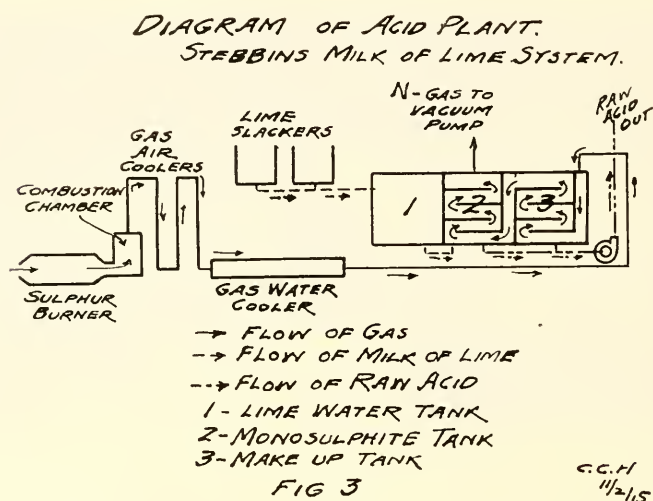 DIAGRAM OF ACID PLANT.
STEBBINS MILK OF LIME SYSTEM.
N-GAS TO
VACUUM
PUMP
RAW
ACID
OUT
LIME
SLACKERS
GAS
AIR
COOLERS
COMBUSTION
CHAMBER
1
2
3
SULPHUR
BURNER
GAS WATER
COOLER
FLOW OF GAS
FLOW OF MILK OF LIME
FLOW OF RAW ACID
1 - LIME WATER TANK
2 - MONOSULPHITE TANK
3 - MAKE UP TANK
FIG 3
C.C.H
11/2/15